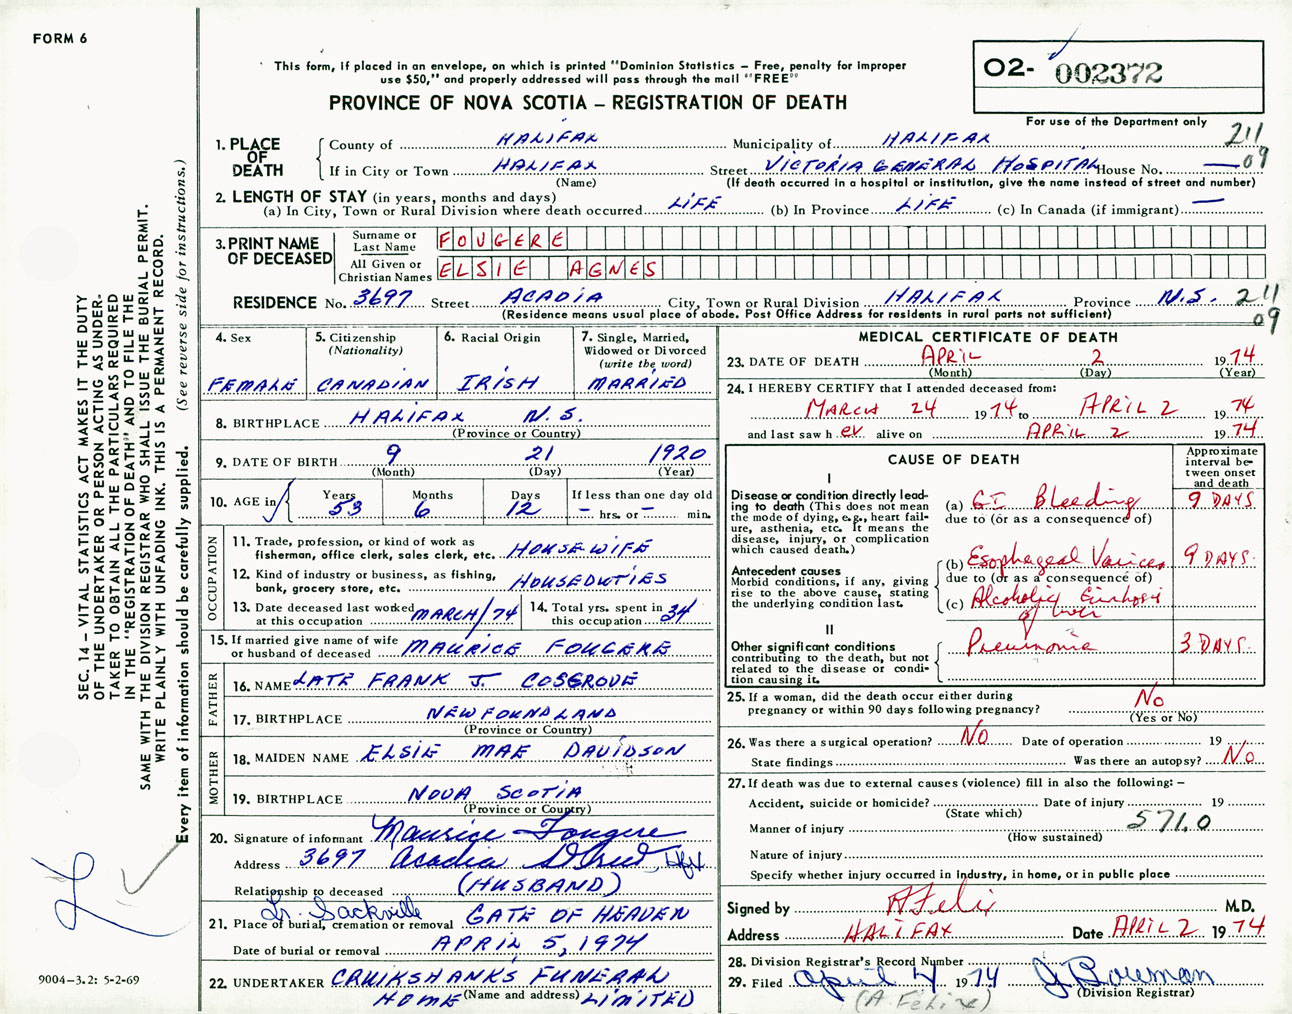 FORM 6
This form, if placed in an envelope, on which is printed "Dominion Statistics – Free, penalty for improper
use $50," and properly addressed will pass through the mail "FREE"
PROVINCE OF NOVA SCOTIA – REGISTRATION OF DEATH
02- 002372
For use of the Department only
211
09
1. PLACE OF DEATH
County of HALIFAX Municipality of HALIFAX
If in City or Town HALIFAX Street VICTORIA GENERAL HOSPITAL House No. —
(Name) (If death occurred in a hospital or institution, give the name instead of street and number)
2. LENGTH OF STAY (in years, months and days)
(a) In City, Town or Rural Division where death occurred LIFE (b) In Province LIFE (c) In Canada (if immigrant) —
3. PRINT NAME OF DECEASED
Surname or Last Name FOUGERE
All Given or Christian Names ELSIE AGNES
RESIDENCE No. 3697 Street ACADIA City, Town or Rural Division HALIFAX Province N.S. 211
09
(Residence means usual place of abode. Post Office Address for residents in rural parts not sufficient)
4. Sex
FEMALE
5. Citizenship
(Nationality)
CANADIAN
6. Racial Origin
IRISH
7. Single, Married,
Widowed or Divorced
(write the word)
MARRIED
8. BIRTHPLACE HALIFAX N.S.
(Province or Country)
9. DATE OF BIRTH 9 21 1920
(Month) (Day) (Year)
10. AGE in Years 53 Months 6 Days 12 If less than one day old
– hrs. or – min.
OCCUPATION
11. Trade, profession, or kind of work as
fisherman, office clerk, sales clerk, etc. HOUSEWIFE
12. Kind of industry or business, as fishing,
bank, grocery store, etc. HOUSEDUTIES
13. Date deceased last worked
at this occupation MARCH/74
14. Total yrs. spent in
this occupation 34
15. If married give name of wife
or husband of deceased MAURICE FOUGERE
FATHER
16. NAME LATE FRANK J. COSGROVE
17. BIRTHPLACE NEWFOUNDLAND
(Province or Country)
MOTHER
18. MAIDEN NAME ELSIE MAE DAVIDSON
19. BIRTHPLACE NOVA SCOTIA
(Province or Country)
20. Signature of informant Maurice Fougere
Address 3697 Acadia Street, Hfx
Relationship to deceased (HUSBAND)
Lr. Sackville
21. Place of burial, cremation or removal GATE OF HEAVEN
Date of burial or removal APRIL 5, 1974
22. UNDERTAKER CRUIKSHANKS FUNERAL
HOME (Name and address) LIMITED
MEDICAL CERTIFICATE OF DEATH
23. DATE OF DEATH APRIL 2 1974
(Month) (Day) (Year)
24. I HEREBY CERTIFY that I attended deceased from:
MARCH 24 1974 to APRIL 2 1974
and last saw h er alive on APRIL 2 1974
CAUSE OF DEATH
Approximate
interval be-
tween onset
and death
I
Disease or condition directly lead-
ing to death (This does not mean
the mode of dying, e.g., heart fail-
ure, asthenia, etc. It means the
disease, injury, or complication
which caused death.)
(a) GI Bleeding 9 DAYS
due to (or as a consequence of)
(b) Esophageal Varices 9 DAYS.
due to (or as a consequence of)
Antecedent causes
Morbid conditions, if any, giving
rise to the above cause, stating
the underlying condition last.
(c) Alcoholic Cirrhosis
of liver
II
Other significant conditions
contributing to the death, but not
related to the disease or condi-
tion causing it.
Pneumonia 3 DAYS.
25. If a woman, did the death occur either during
pregnancy or within 90 days following pregnancy? No
(Yes or No)
26. Was there a surgical operation? NO Date of operation 19
State findings Was there an autopsy? No
27. If death was due to external causes (violence) fill in also the following: –
Accident, suicide or homicide? Date of injury 19
(State which)
Manner of injury 571.0
(How sustained)
Nature of injury
Specify whether injury occurred in industry, in home, or in public place
Signed by A Felix M.D.
Address HALIFAX Date APRIL 2 1974
28. Division Registrar's Record Number
29. Filed april 4 1974 J Bowman
(A. Felix) (Division Registrar)
SEC. 14 – VITAL STATISTICS ACT MAKES IT THE DUTY
OF THE UNDERTAKER OR PERSON ACTING AS UNDER-
TAKER TO OBTAIN ALL THE PARTICULARS REQUIRED
IN THE "REGISTRATION OF DEATH" AND TO FILE THE
SAME WITH THE DIVISION REGISTRAR WHO SHALL ISSUE THE BURIAL PERMIT.
WRITE PLAINLY WITH UNFADING INK. THIS IS A PERMANENT RECORD.
Every item of information should be carefully supplied. (See reverse side for instructions.)
9004–3.2: 5-2-69